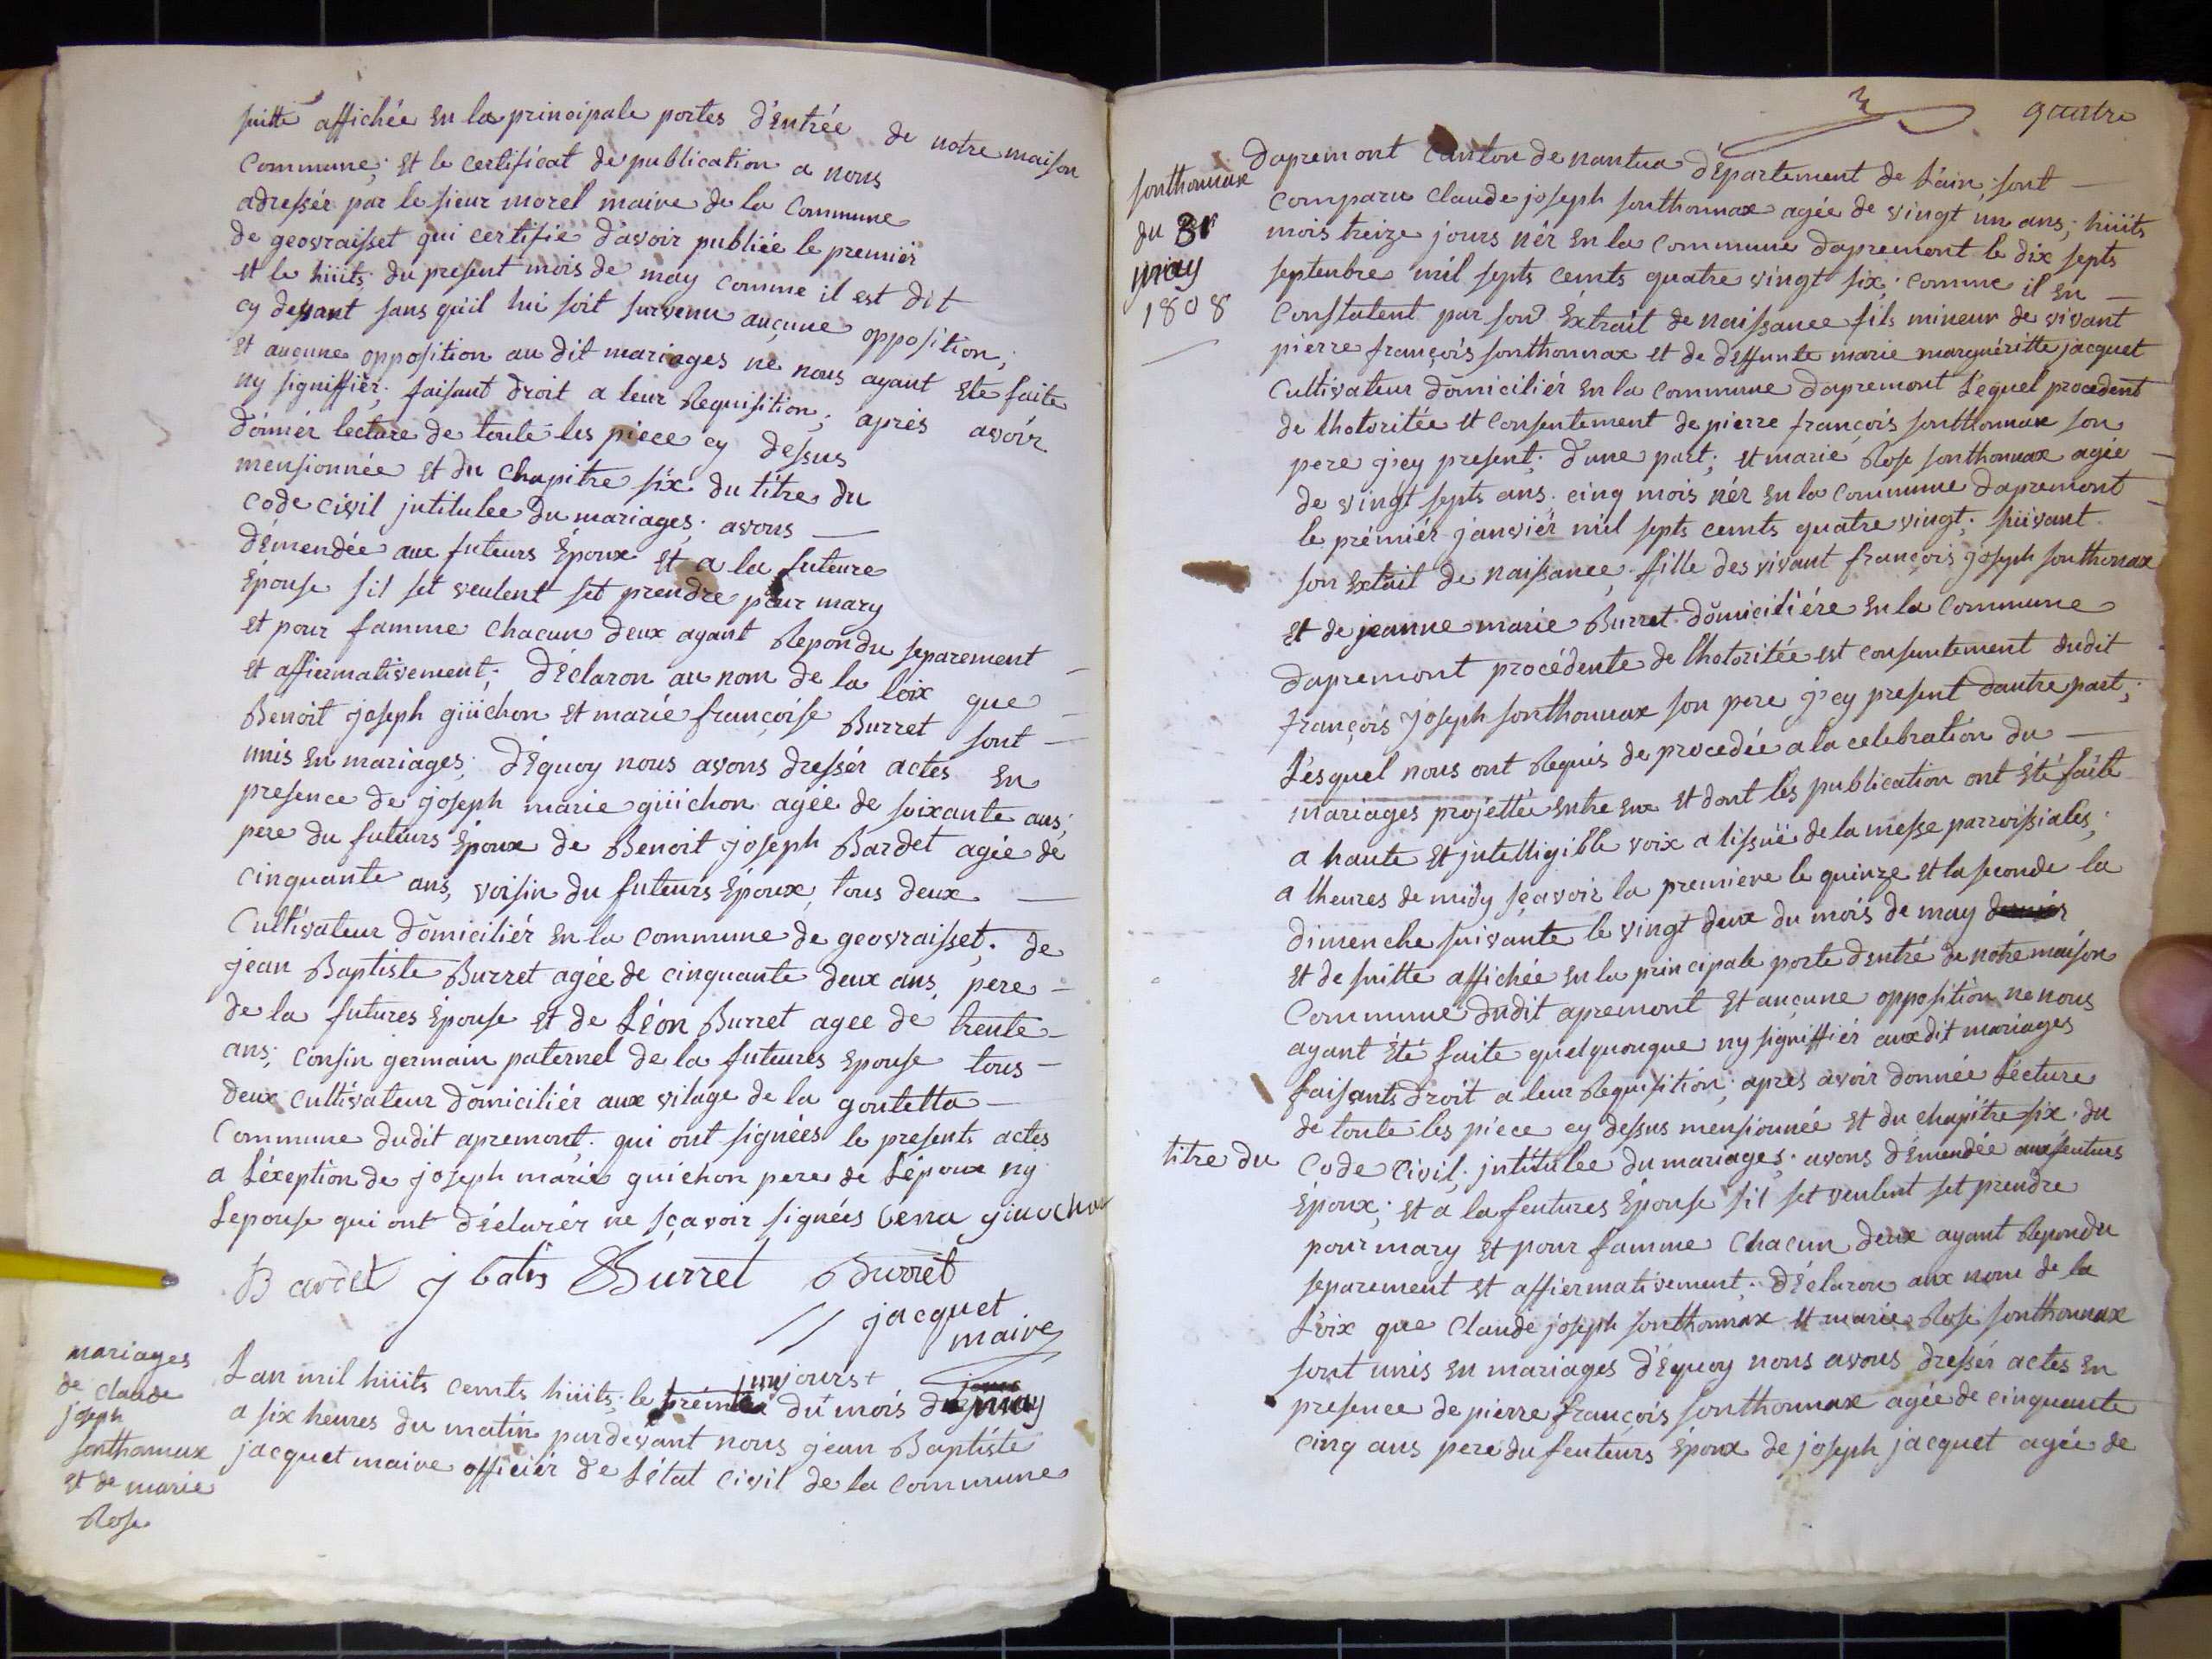 suitte affichée En la principale portes d'Entrée de notre maison
Commune; Et le certificat de publication a nous
adressér par le sieur morel maire de la Commune
de geovraisset qui certifie d'avoir publiée le premiér
Et le hüits du present mois de may comme il est dit
cy dessant sans qu'il lui soit survenu auçune opposition,
Et aucune opposition au dit mariages ne nous ayant Ete faite
ny signiffiér; faisant droit a leur Requisition; aprés avoir
donnér lecture de toute les piece cy dessus
mensionnée Et du Chapitre six du titre du
Code civil jntitulee du mariages; avons —
démendée aux futeurs Époux Et a la futeure
Épouse s'il set veulent set prendre pour mary
et pour famme Chacun deux ayant Repondu separement
et affiermativement; déclaron au nom de la loix que
Benoit joseph giiichon Et marie françoise Burret sont —
unis En mariages; déquoy nous avons dressér actes En
presence de joseph marie giiichon agée de soixante ans;
pere du futeurs Époux de Benoit joseph Bardet agée de
cinquante ans, voisin du futeurs Époux, tous deux —
Cultivateur domiciliér En la Commune de geovraisset; de
jean Baptiste Burret agée de cinquante deux ans, pere —
de la futures Épouse Et de Léon Burret agee de trente —
ans; Cousin germain paternel de la futeures Epouse tous —
deux cultivateur domiciliér aux vilage de la goutetta —
Commune dudit apremont; qui ont signées le present actes
a Léxeption de joseph marie guichon pere de Lépoux ny
Lepouse qui ont déclarér ne sçavoir signées
Bardet j batis Burret Burret
jacquet
maire
mariages
de Claude
joseph
sonthonnax
et de marie
Rose
Lan mil hüits cemts hüits; le jours+ du mois de may
a six heures du matin pardevant nous jean Baptiste
jacquet maire officiér de Létat civil de la commune
quatre
sonthonnax
du 31
may
1808
dapremont Canton de nantua département de Lain; sont —
Comparu Claude joseph sonthonnax agée de vingt un ans; hüits
mois treize jours nér En la Commune dapremont le dix septs
septenbre mil septs cemts quatre vingt six; comme il En —
Constatent par son Éxtrait de naissance fils mineur de vivant
pierre françois sonthonnax et de déffunte marie marguéritte jacquet
Cultivateur domiciliér En la Commune dapremont Léquel procedent
de lhotoritée Et Consentement de pierre françois sontthonnax son
pere j'cy present; dune part; Et marie Rose sonthonnax agée —
de vingt septs ans; cinq mois nér En la Commune dapremont —
le prémiér janviér mil septs cemts quatre vingt; suivant
son Extrait de naissance, fille des vivant françois joseph sonthonax
Et de jeanne marie Burret domiciliére En la Commune
dapremont procédente de lhotoritée est Consentement dudit
françois joseph sonthonnax son pere j'cy present dautre part;
Lésquel nous ont Requis de procedée a la celebration du —
mariages projettée Entre Eux Et dont les publication ont Été faite
a haute Et jntelligible voix a lissuë de la messe parroissiales;
a lheures de midy sçavoir la premiere le quinze et la seconde la
dimenche suivante le vingt deux du mois de may derniér
Et de suitte affichée En la principale porte dentré de notre maison
Commune dudit apremont Et auçune opposition ne nous
ayant Été faite quelquonque ny signiffiér auxdit mariages
faisants droit a leur Requisition; apres avoir donnée Lécture
de toute les piece cy dessus mensionnée Et du chapitre six du
titre du Code Civil; jntitulee du mariages; avons démendée aux feuteurs
Époux; Et a la feutures Épouse s'il set veulent set prendre
pour mary Et pour famme Chacun deux ayant Repondu
separement et affiermativement; déclaron aux nom de la
L'oix que Claude joseph sonthonnax Et marie Rose sonthonnax
sont unis En mariages déquoy nous avons dressér actes En
presence de pierre françois sonthonnax agée de cinquante
cinq ans pere du feuteurs Époux de joseph jacquet agée de